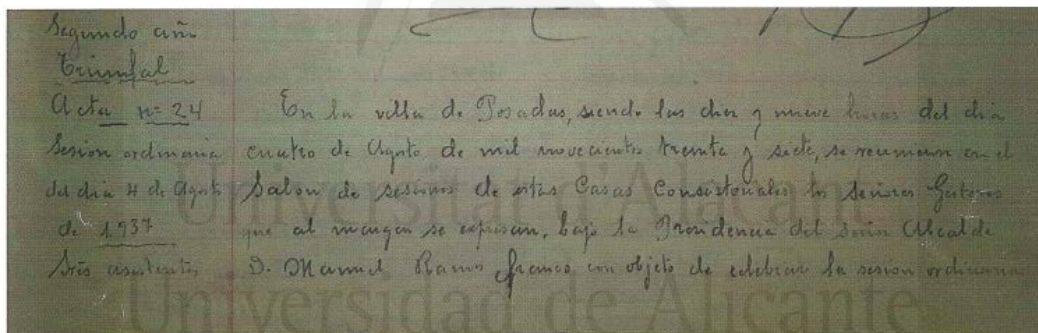 Segundo año
Triunfal
Acta nº 24
Sesion ordinaria
del dia 4 de Agosto
de 1937
Srés asistentes,
En la villa de Posadas, siendo las diez y nueve horas del dia
cuatro de Agosto de mil novecientos treinta y siete, se reunieron en el
Salon de sesiones de estas Casas Consistoriales los Señores Gestores
que al margen se expresan, bajo la Presidencia del Señor Alcalde
D. Manuel Ramos Franco con objeto de celebrar la sesion ordinaria
Universitat d'Alacant
Universidad de Alicante